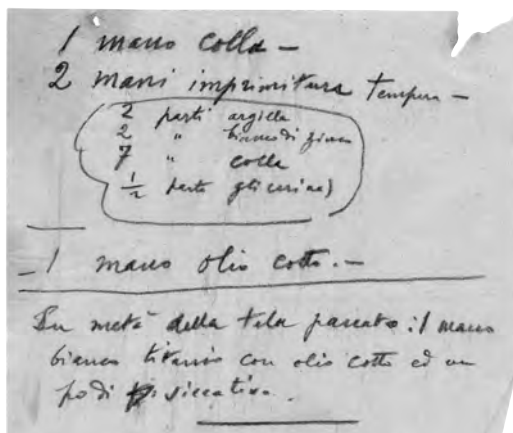 1 mano colla —
2 mani imprimitura tempera —
2 parti argilla
2 " bianco di zinco
7 " colla
½ parte glicerina)
— 1 mano olio cotto. —
Su metà della tela passato: 1 mano
bianco titanio con olio cotto ed un
po di siccativo.